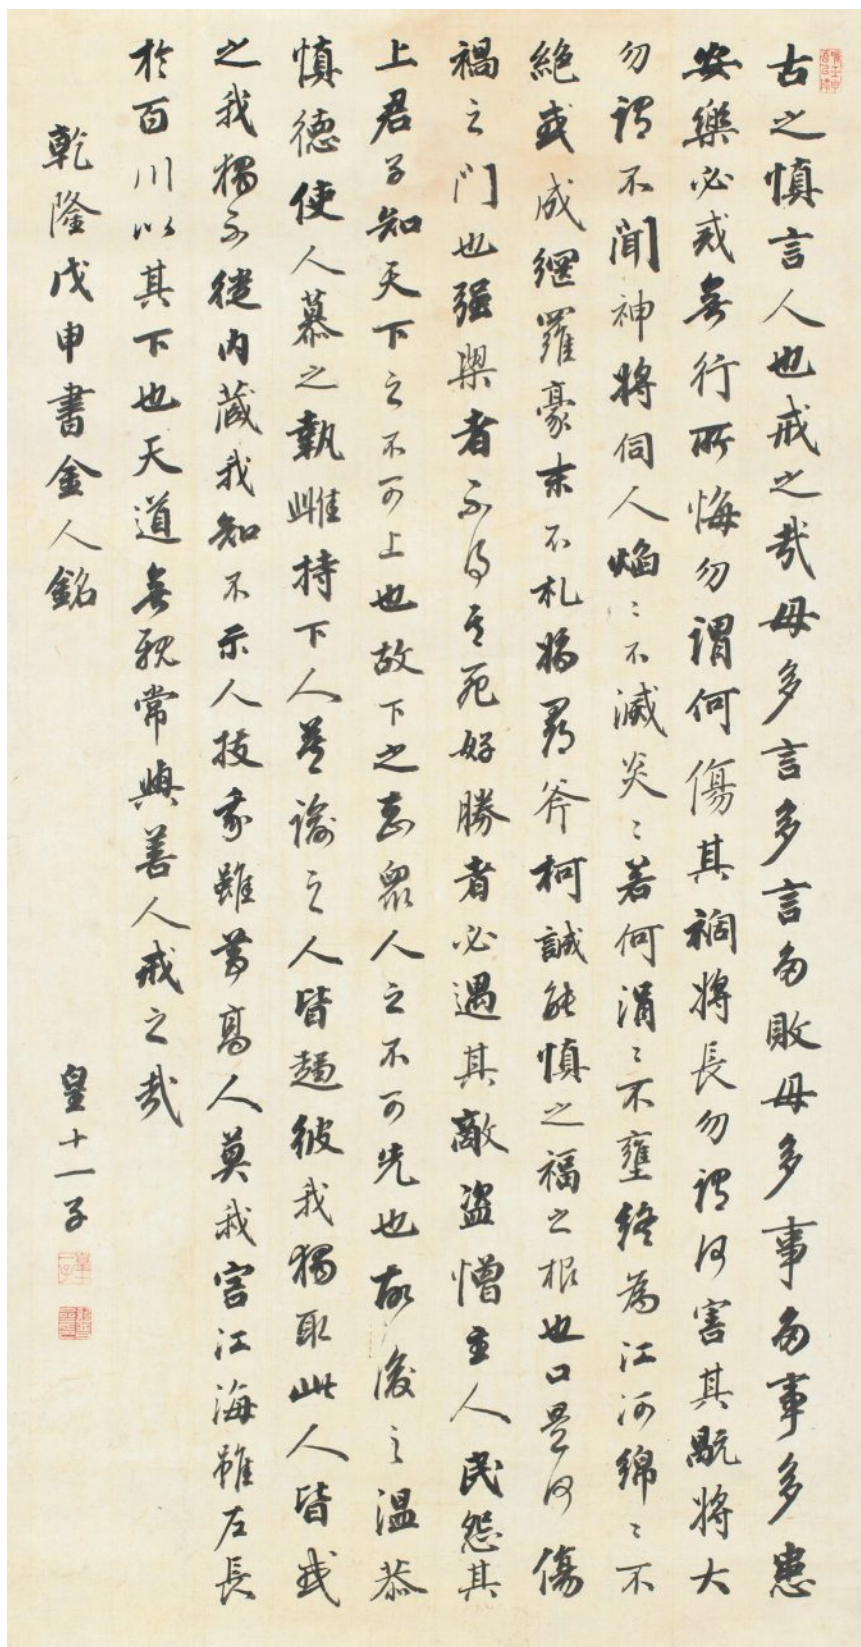 古之慎言人也戒之哉毋多言多言多敗毋多事多事多患
安樂必戒無行所悔勿謂何傷其禍將長勿謂何害其禍將大
勿謂不聞神將伺人焰〻不滅炎〻若何涓〻不壅終為江河綿〻不
絕或成網羅豪末不札將尋斧柯誠能慎之福之根也口是何傷
禍之門也強梁者不得其死好勝者必遇其敵盜憎主人民怨其
上君子知天下之不可上也故下之知眾人之不可先也故後之溫恭
慎德使人慕之執雌持下人莫踰之人皆趨彼我獨取此人皆或
之我獨不從內藏我知不示人技我雖尊高人莫我害江海雖左長
於百川以其下也天道無親常與善人戒之哉
乾隆戊申書金人銘
皇十一子